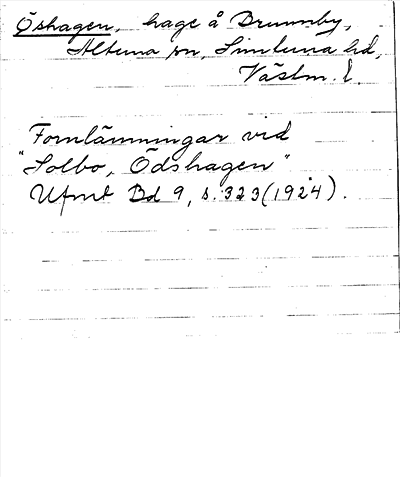 Öshagen, hage å Brunnby,
Altuna sn, Simtuna hd,
Västm. l.
Fornlämningar vid
"Solbo, Ödshagen"
Ufmt Bd 9, s. 323 (1924).